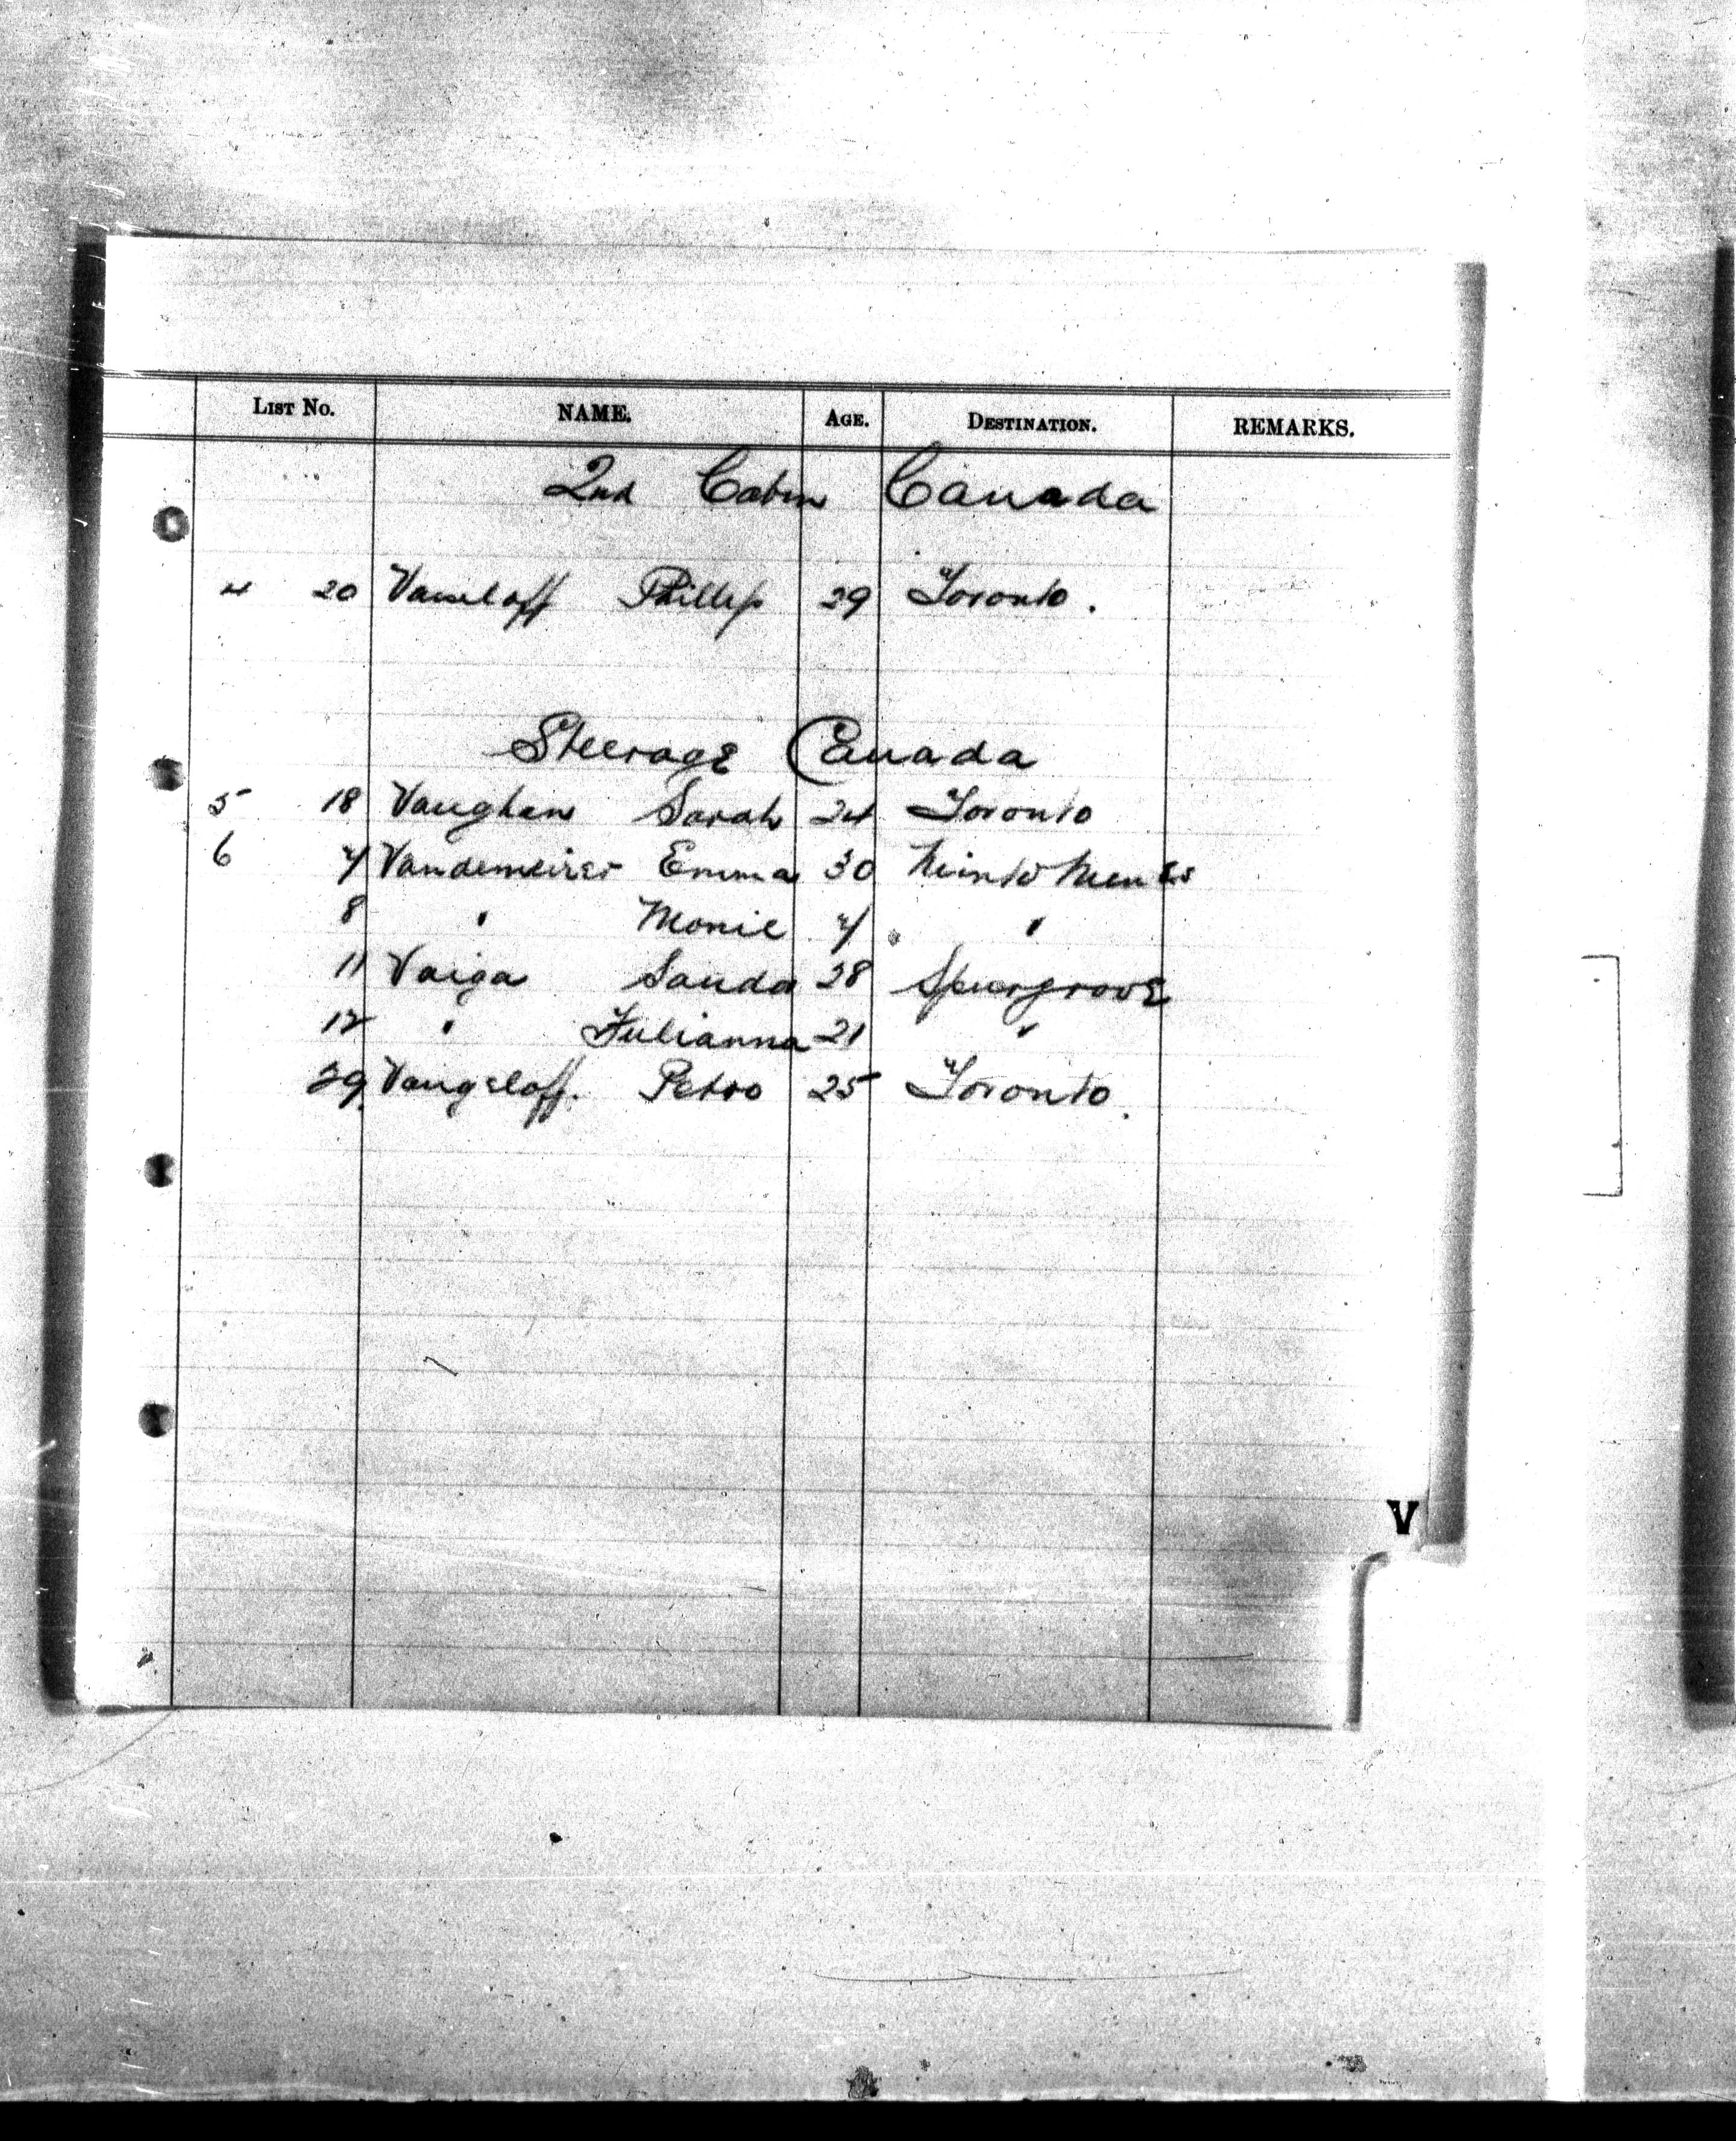 LIST No. NAME. AGE. DESTINATION. REMARKS.
2nd Cabin Canada
4 20 Vaseloff Phillip 29 Toronto.
Steerage Canada
5 18 Vaughan Sarah 24 Toronto
6 7 Vandemeirer Emma 30
8 " Marie 7 "
11 Vaiga Sanda 28
12 " Julianna 21 "
29 Vangeloff. Petro 25 Toronto.
V